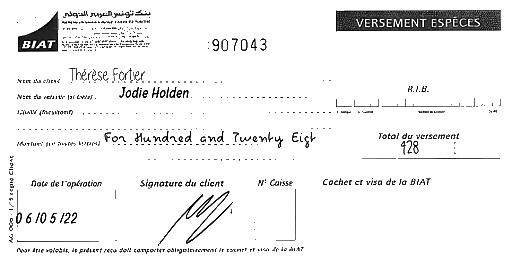 بنك تونس العربي الدولي
BIAT
VERSEMENT ESPÈCES
907043
Nom du client Thérèse Fortier
Nom du verseur (si tiers) Jodie Holden
R.I.B.
Libellé (facultatif)
Montant (en toutes lettres) For Hundred and Twenty Eight
Total du versement
428
Date de l'opération
Signature du client
N° Caisse
Cachet et visa de la BIAT
06/05/22
Pour être valable, le présent reçu doit comporter obligatoirement le cachet et visa de la BIAT